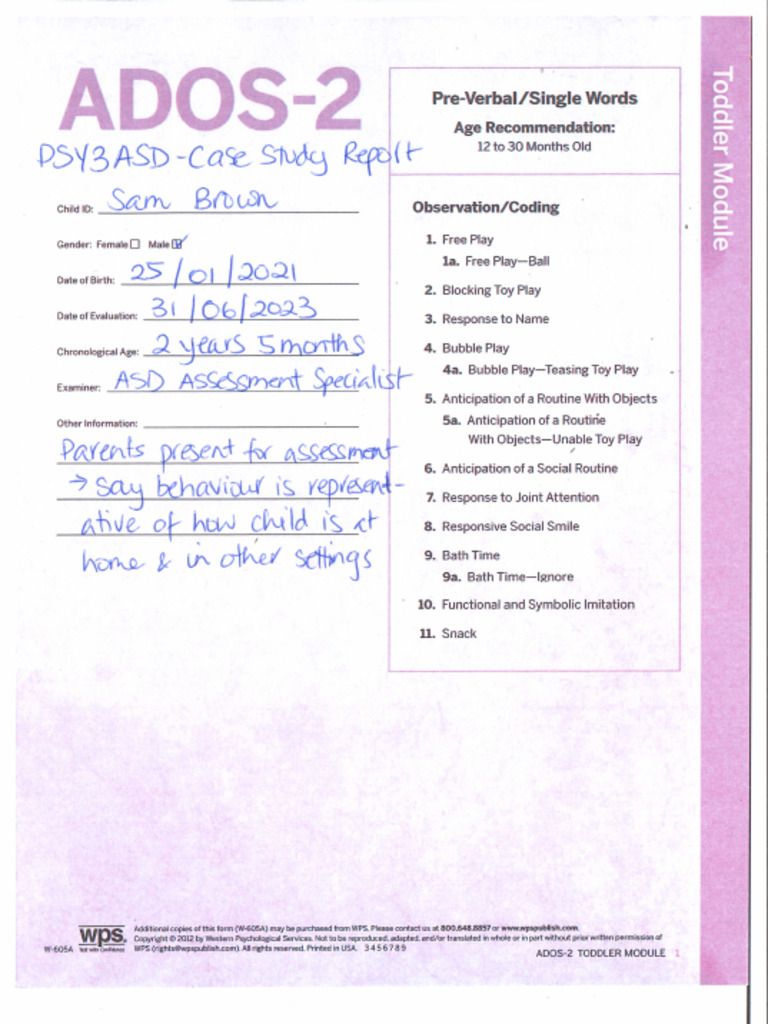 ADOS-2
Toddler Module
PSY3ASD - Case Study Report
Child ID: Sam Brown
Gender: Female Male
Date of Birth: 25/01/2021
Date of Evaluation: 31/06/2023
Chronological Age: 2 years 5 months
Examiner: ASD Assessment Specialist
Other Information:
Parents present for assessment
→ say behaviour is represent-
ative of how child is at
home & in other settings
Pre-Verbal/Single Words
Age Recommendation:
12 to 30 Months Old
Observation/Coding
1. Free Play
1a. Free Play—Ball
2. Blocking Toy Play
3. Response to Name
4. Bubble Play
4a. Bubble Play—Teasing Toy Play
5. Anticipation of a Routine With Objects
5a. Anticipation of a Routine
With Objects—Unable Toy Play
6. Anticipation of a Social Routine
7. Response to Joint Attention
8. Responsive Social Smile
9. Bath Time
9a. Bath Time—Ignore
10. Functional and Symbolic Imitation
11. Snack
W-605A
wps.
Test with Confidence
Additional copies of this form (W-605A) may be purchased from WPS. Please contact us at 800.648.8857 or www.wpspublish.com.
Copyright © 2012 by Western Psychological Services. Not to be reproduced, adapted, and/or translated in whole or in part without prior written permission of
WPS (rights@wpspublish.com). All rights reserved. Printed in USA. 3 4 5 6 7 8 9
ADOS-2 TODDLER MODULE 1